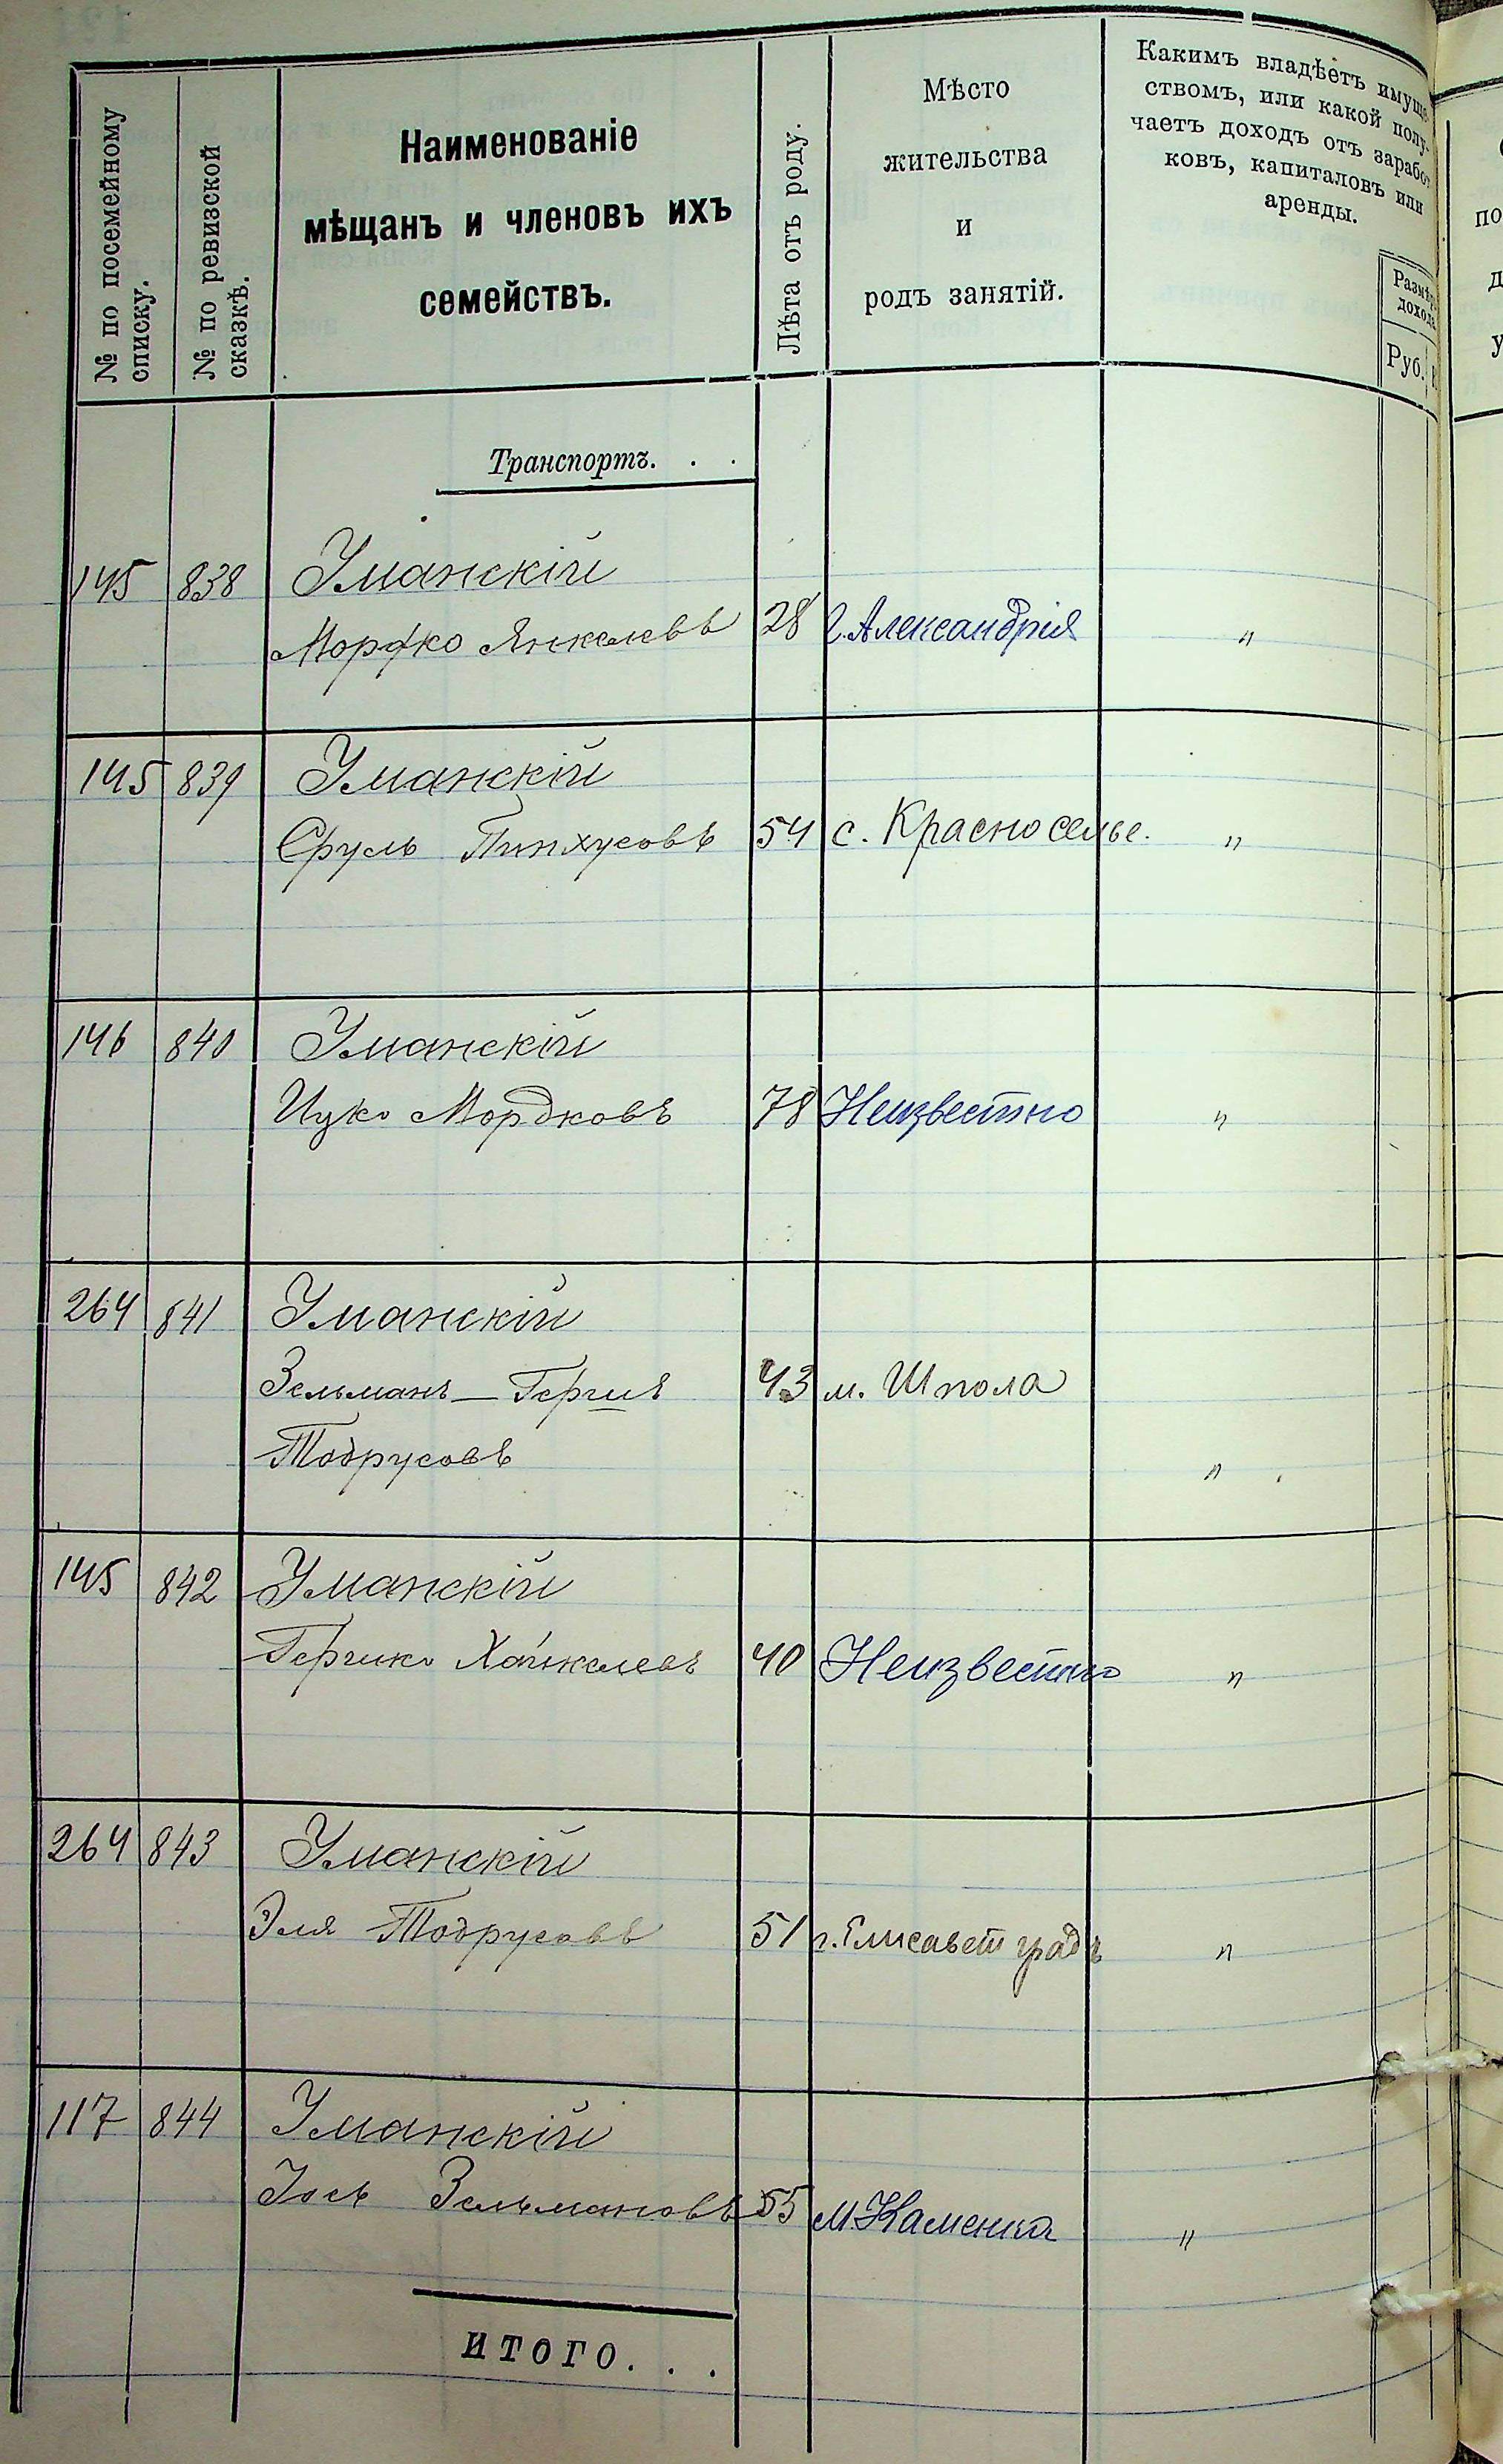 № по посемейному
списку.
№ по ревизской
сказкѣ.
Наименованіе
мѣщанъ и членовъ ихъ
семействъ.
Лѣта отъ роду.
Мѣсто
жительства
и
родъ занятій.
Какимъ владѣетъ имуще-
ствомъ, или какой полу-
чаетъ доходъ отъ заработ
ковъ, капиталовъ или
аренды.
Размѣр
дохода
Руб.
Транспортъ. . .
145 838 Уманскій
Мордко Янкелевъ 28 г. Александрія "
145 839 Уманскій
Сруль Пинхусовъ 54 с. Красноселье. "
146 840 Уманскій
Ицко Мордковъ 78 Неизвестно "
264 841 Уманскій
Зельманъ - Гершъ 43 м. Шпола
Тодрусовъ "
145 842 Уманскій
Гершко Хаімкелевъ 40 Неизвестно "
264 843 Уманскій
Эля Тодрусовъ 51 г. Елисаветградъ "
117 844 Уманскій
Іосъ Зельмановъ 55 м. Каменка "
ИТОГО. . .